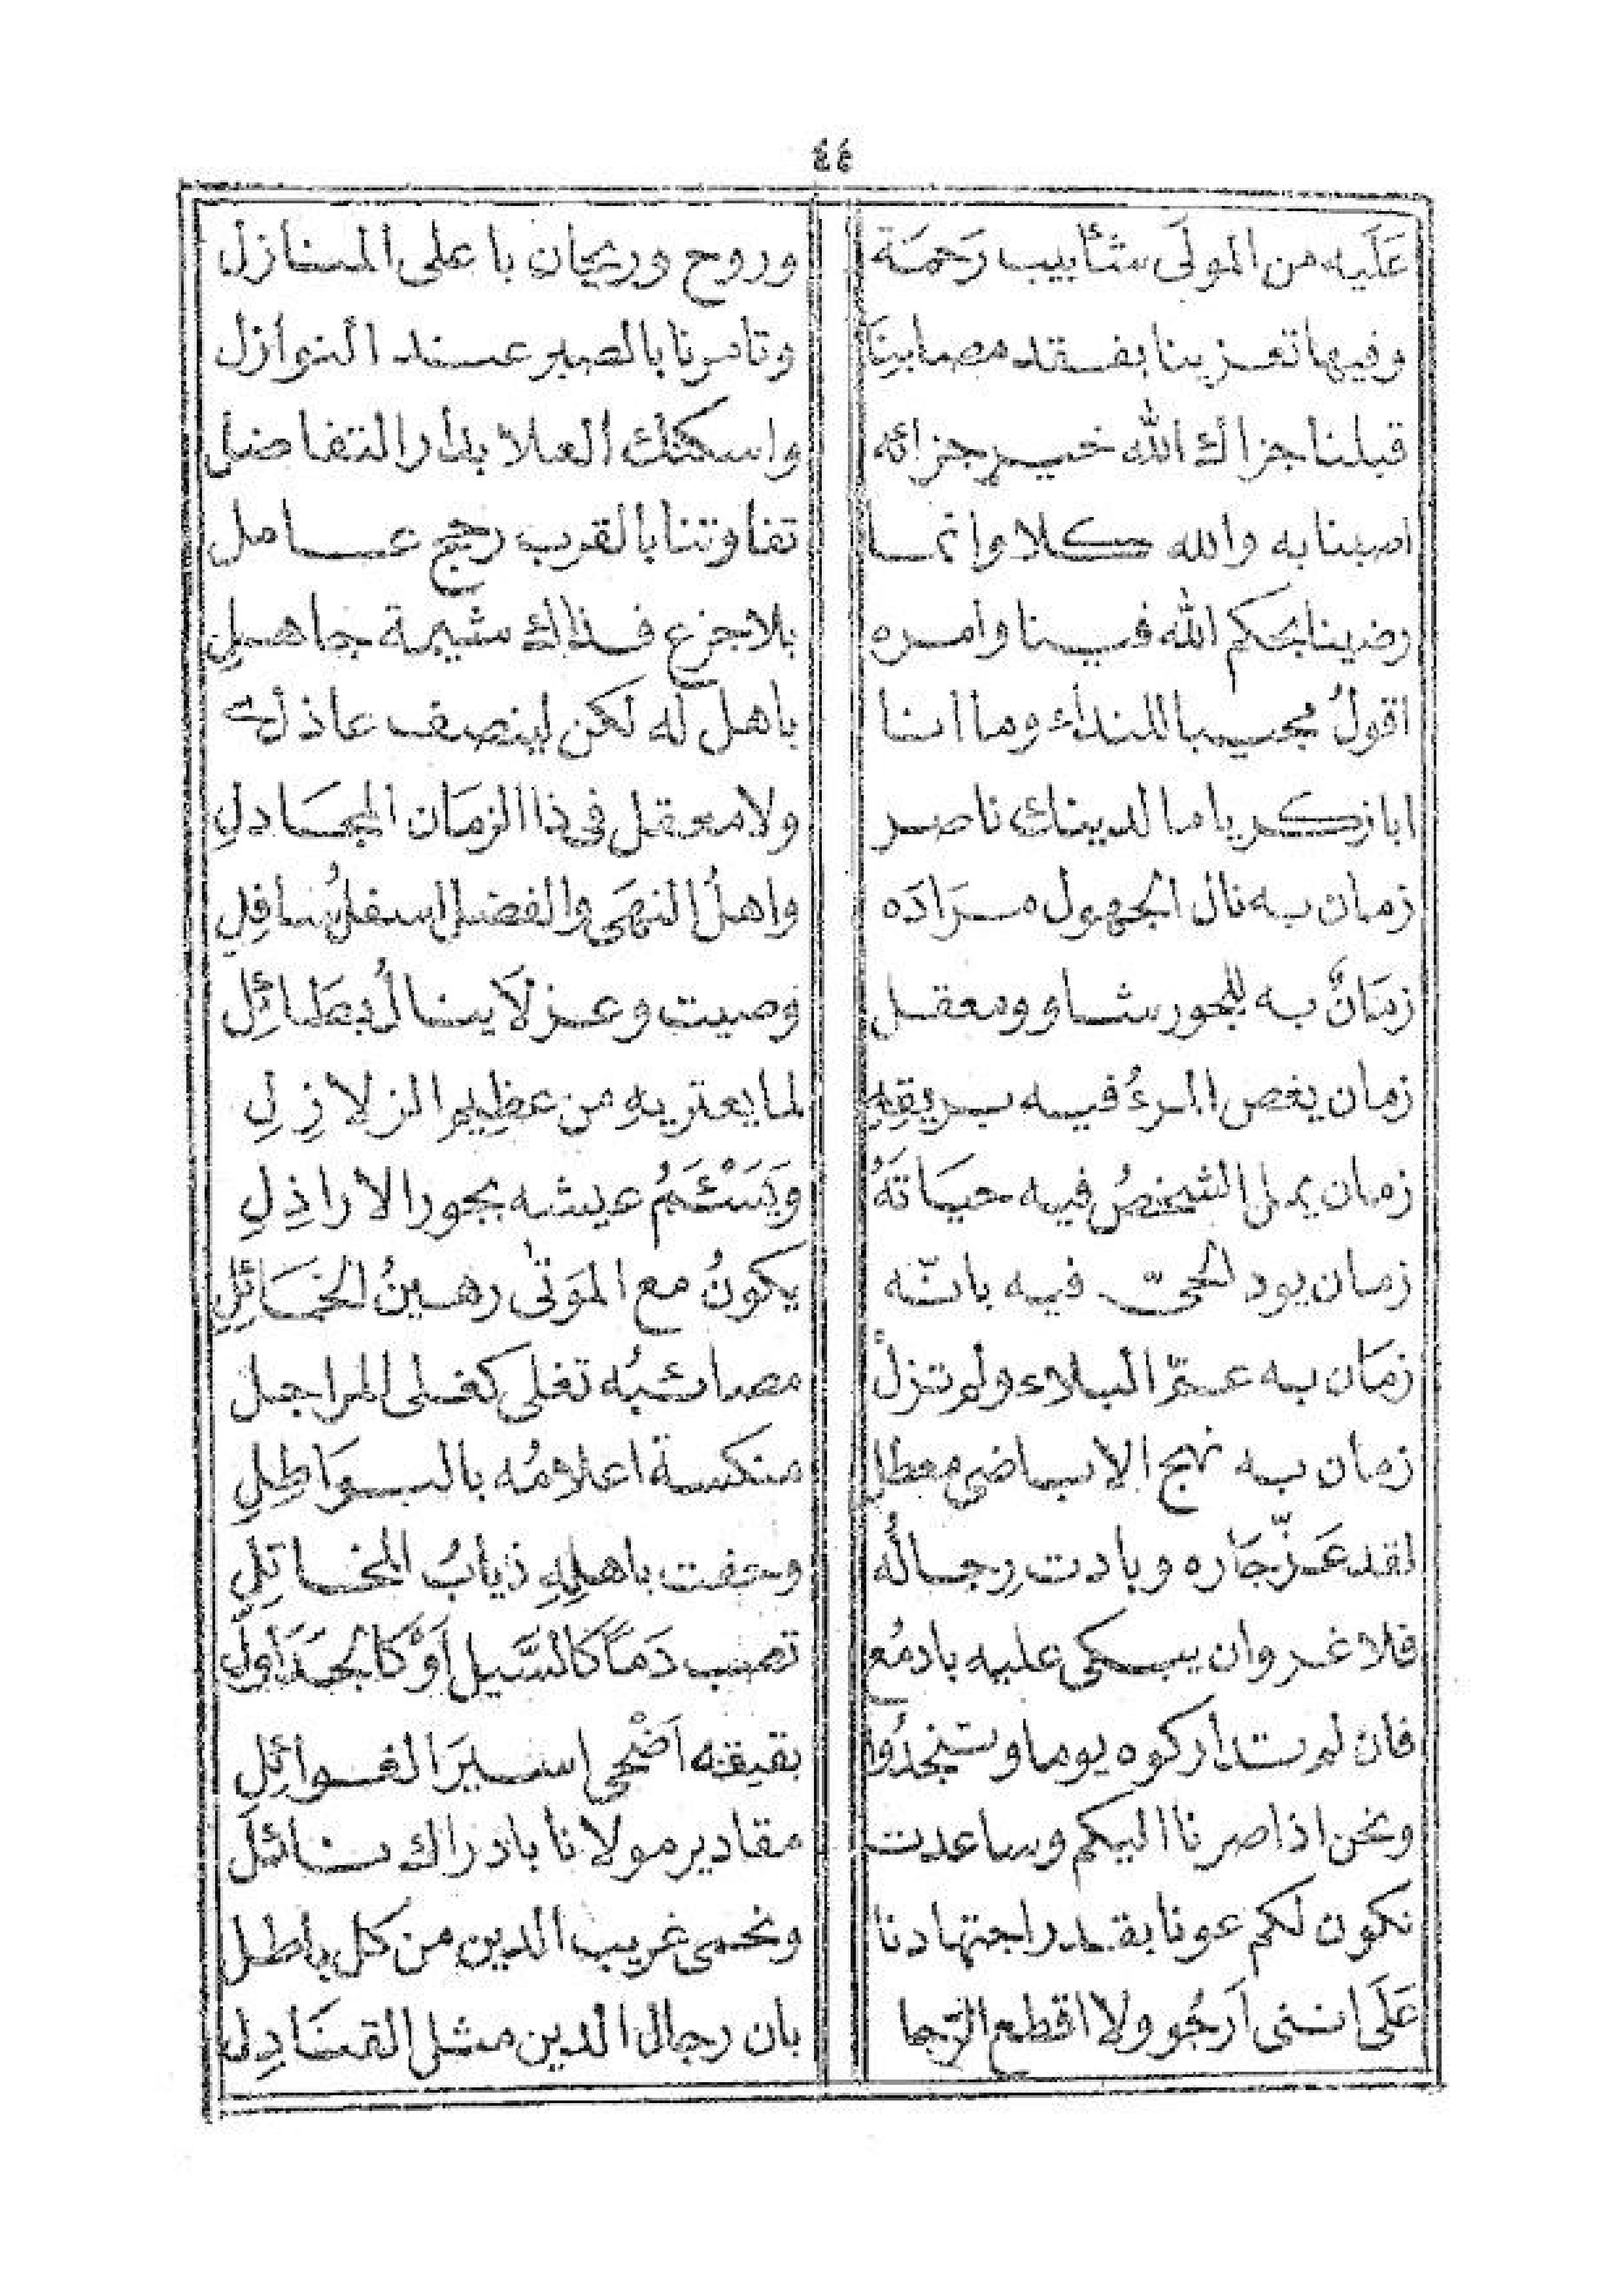 ٤٤
عَلَيه من المولَى شئابيب رَحمَة وروح وريحان باعلى المنازل
وفيها تعزينا بفقد مصابينَا وتامرنا بالصبر عند النوازل
قبلنا جزاك الله خير جزائه واسكنك العلا بدار التفاضل
اصبنا به والله كلا وانما تفاوتنا بالقرب رجح عامل
رضينا بحكم الله فينا وامره بلا جزع فذاك شيمة جاهلِ
اقولُ مجيبا للنداء وما انا باهل له لكن لينصف عاذلى
ابا زكريا ما لدينك ناصر ولا معقل فى ذا الزمَان المجَادلِ
زمان به نال الجهول مرَادَه واهلُ النهَى والفضل اسفلُ سافِلِ
زمَانٌ به للجور شاو ومعقل وصيت وعز لَا ينالُ بطَائِل
زمان يغص المرءُ فيه بريقِهِ لما يعتريهِ من عظِيم الزلازِلِ
زمان يمل الشخصُ فيه حيَاتَهُ وَيَسْئَمُ عيشه بجور الاراذِلِ
زمان يود الحىّ فيه بانّه يكونُ مع المَوتٰى رهينُ الخمَائِلِ
زمَان به عمّ البلاء ولم تزلْ مصائبُه تغلى كغلى المراجل
زمان به نهج الاباضى معطل منكسة اعلامُه بالبوَاطِلِ
لقد عَزّ جَاره وبادت رِجالُه وحفت باهلِهِ ذيابُ المخاتِلِ
فلا غرو ان يبكى عليه بادمُع تصب دَمًا كَالسَّيل اَوْ كَالجَدَاوِلِ
فان لم تداركوه يوما وتنجدُوا بقيقه اَضْحى اسيرَ الغوائِلِ
ونحن اذا صرنا اليكم وساعدت مقادير مولانا بادراك نائلَ
نكون لكم عونا بقدر اجتهادنا ونحمى غريب الدين من كل باطل
عَلَى اننى اَرجُو ولا اقطع الرّجا بان رجال الدين مثل القنَادِل